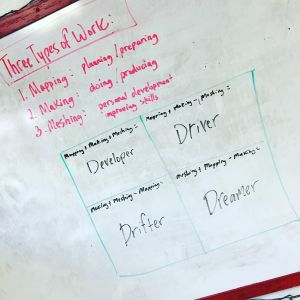 Three Types of Work:
1. Mapping: planning/preparing
2. Making: doing/producing
3. Meshing: personal development
improving skills
Mapping + Making + Meshing =
Developer
Mapping + Making - Meshing =
Driver
Making + Meshing - Mapping =
Drifter
Meshing + Mapping - Making =
Dreamer